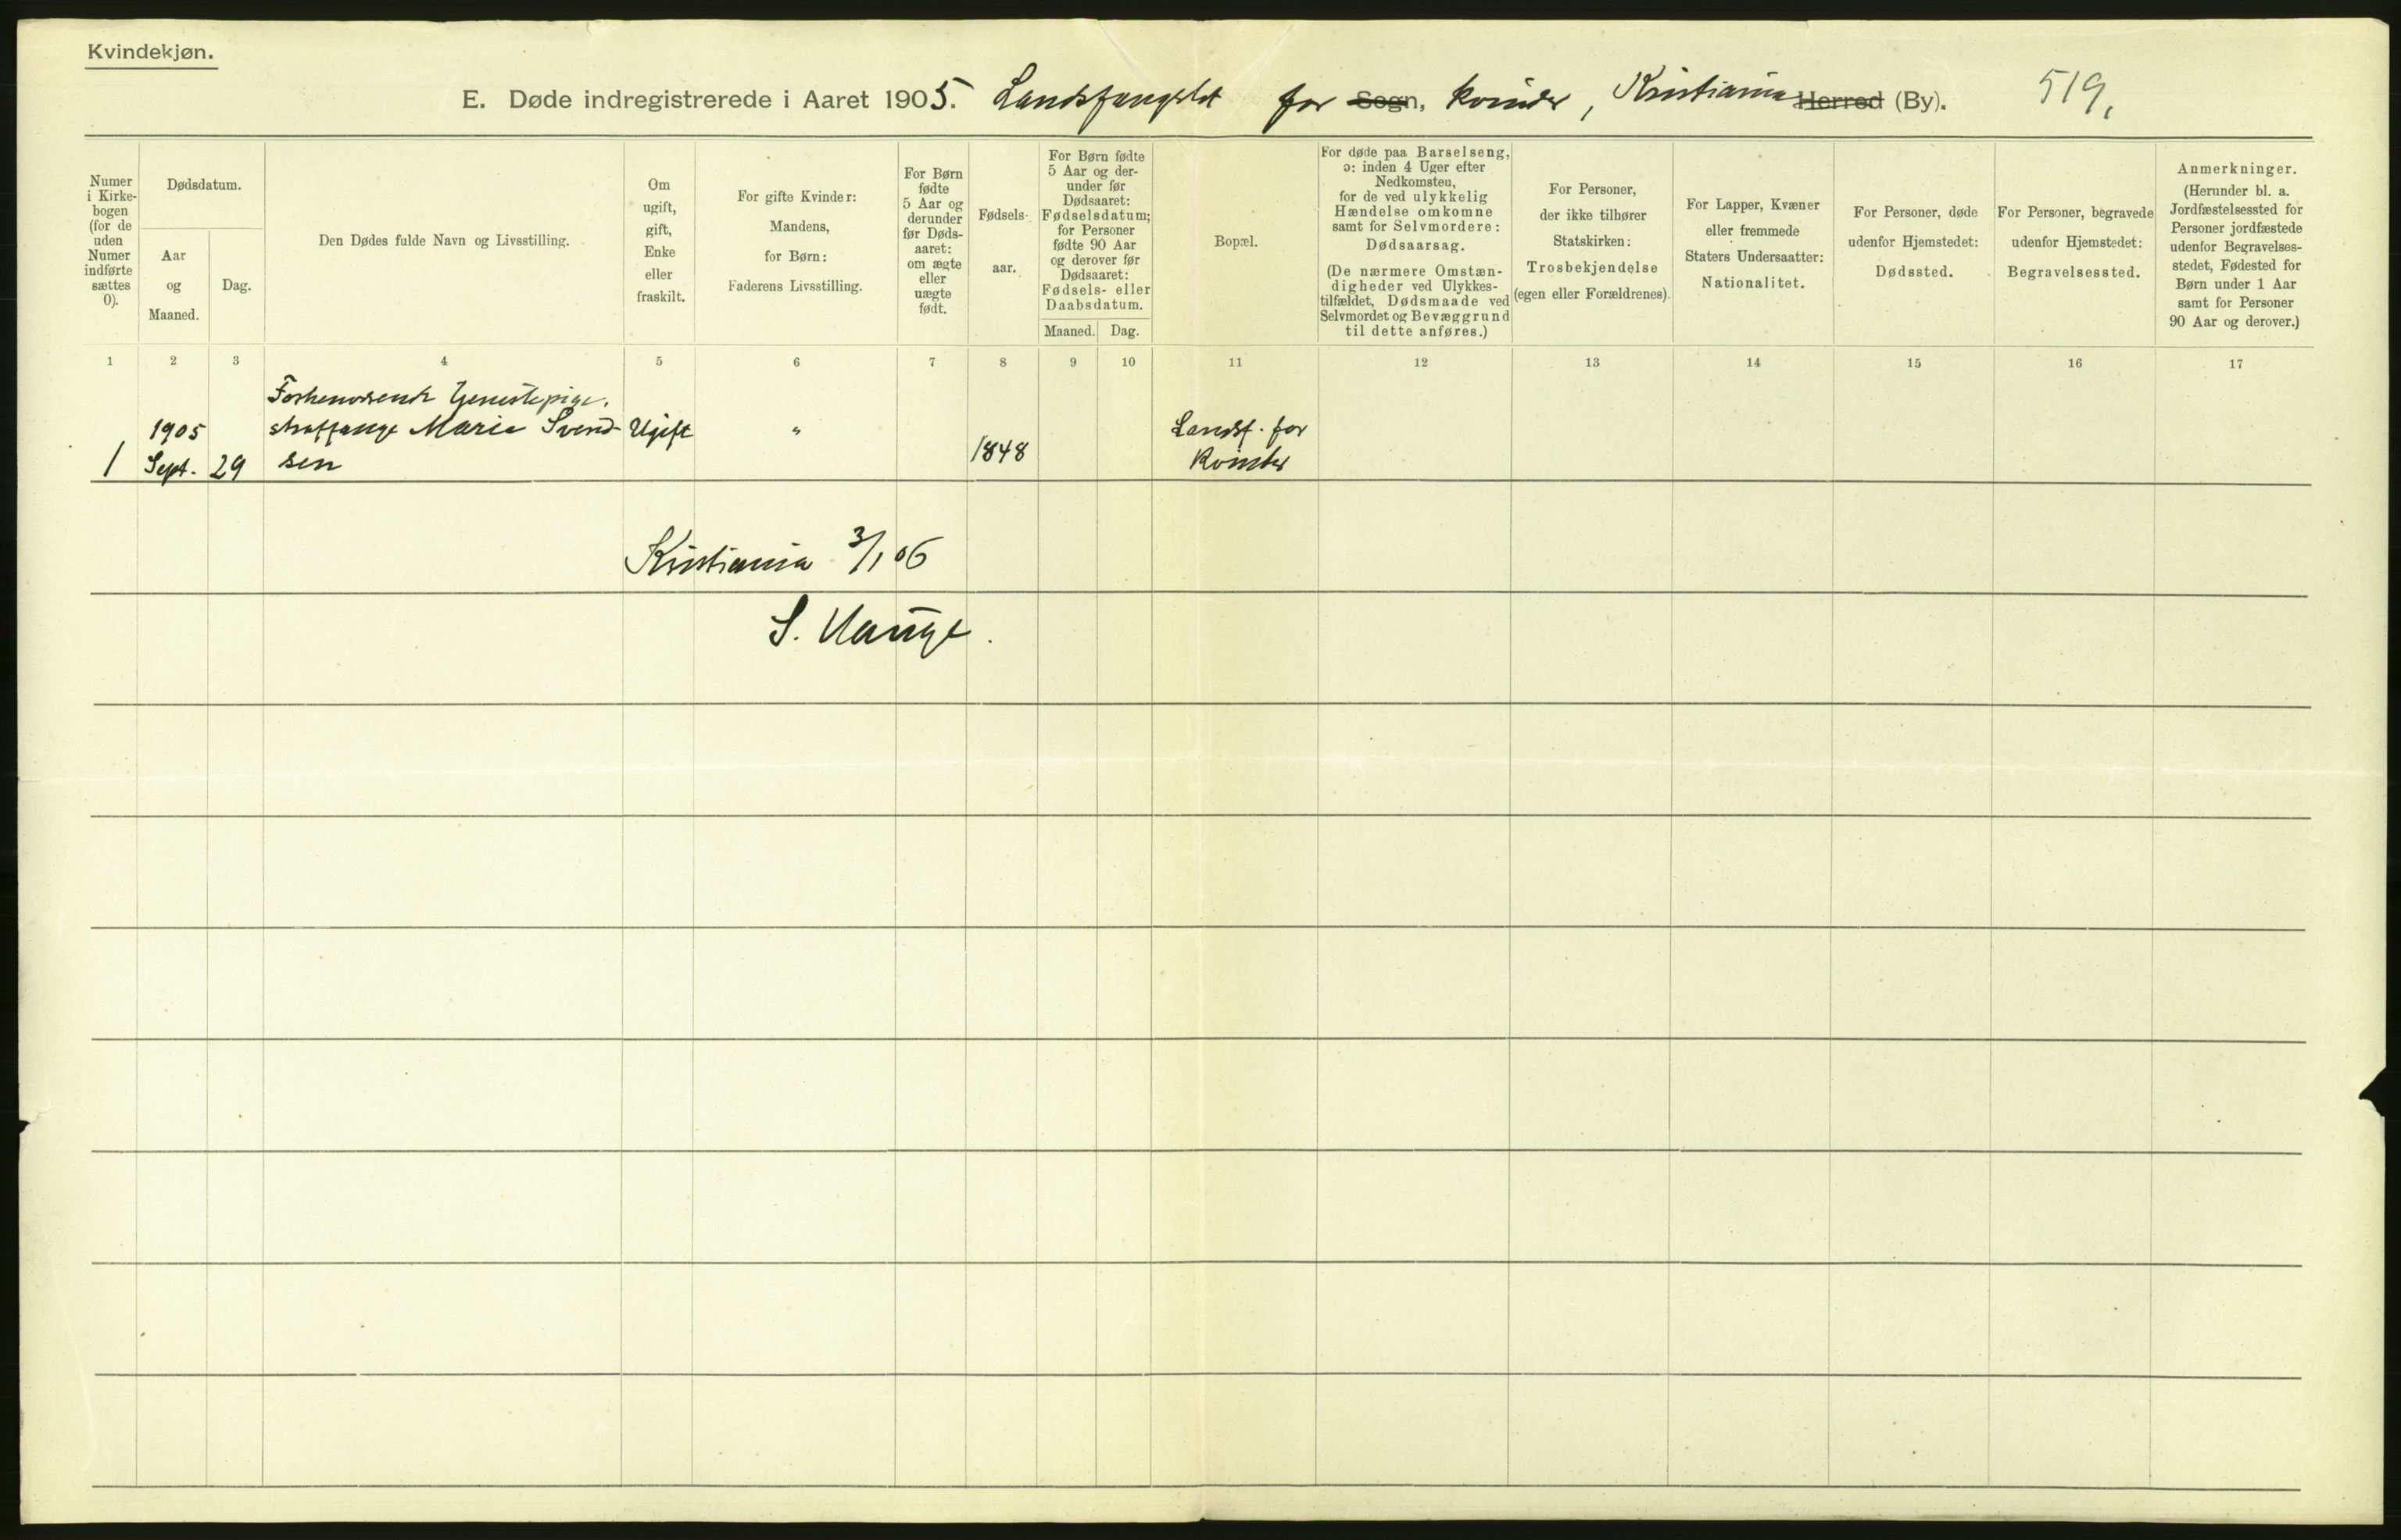 Kvindekjøn.
E. Døde indregistrerede i Aaret 1905. Landsfængslet for Sogn, kvinder, Kristiania Herred (By). 519.
Numer
i Kirke-
bogen
(for de
uden
Numer
indførte
sættes
0).
Dødsdatum.
Aar
og
Maaned.
Dag.
Den Dødes fulde Navn og Livsstilling.
Om
ugift,
gift,
Enke
eller
fraskilt.
For gifte Kvinder:
Mandens,
for Børn:
Faderens Livsstilling.
For Børn
fødte
5 Aar og
derunder
før Døds-
aaret:
om ægte
eller
uægte
født.
Fødsels-
aar.
For Børn fødte
5 Aar og der-
under før
Dødsaaret:
Fødselsdatum;
for Personer
fødte 90 Aar
og derover før
Dødsaaret:
Fødsels- eller
Daabsdatum.
Maaned. Dag.
Bopæl.
For døde paa Barselseng,
ɔ: inden 4 Uger efter
Nedkomsten,
for de ved ulykkelig
Hændelse omkomne
samt for Selvmordere:
Dødsaarsag.
(De nærmere Omstæn-
digheder ved Ulykkes-
tilfældet, Dødsmaade ved
Selvmordet og Bevæggrund
til dette anføres.)
For Personer,
der ikke tilhører
Statskirken:
Trosbekjendelse
(egen eller Forældrenes).
For Lapper, Kvæner
eller fremmede
Staters Undersaatter:
Nationalitet.
For Personer, døde
udenfor Hjemstedet:
Dødssted.
For Personer, begravede
udenfor Hjemstedet:
Begravelsessted.
Anmerkninger.
(Herunder bl. a.
Jordfæstelsessted for
Personer jordfæstede
udenfor Begravelses-
stedet, Fødested for
Børn under 1 Aar
samt for Personer
90 Aar og derover.)
1 2 3 4 5 6 7 8 9 10 11 12 13 14 15 16 17
Forhenværende tjenestepige,
1905 straffange Marie Svend- Ugift " Landsf. for
1 Sept. 29 sen 1848 Kvinder
Kristiania 3/1 06
S. Hauge.